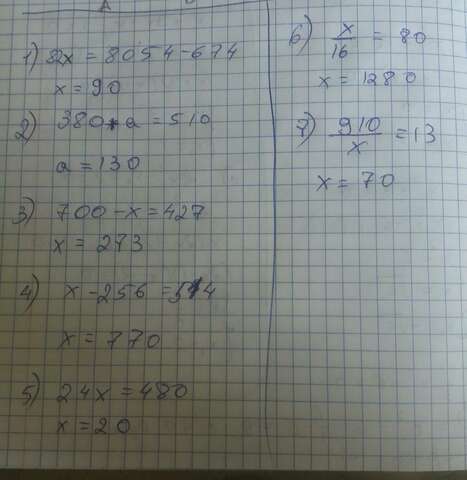 A
1) 82x = 8054 - 674
x = 90
2) 380 + a = 510
a = 130
3) 700 - x = 427
x = 273
4) x - 256 = 514
x = 770
5) 24x = 480
x = 20
6) x/16 = 80
x = 1280
7) 910/x = 13
x = 70